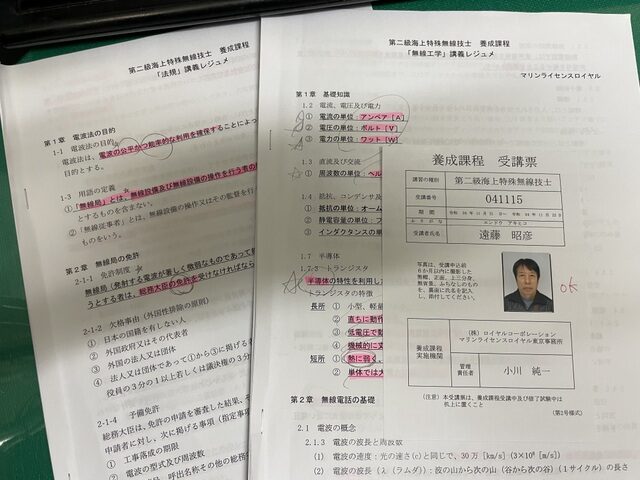 第二級海上特殊無線技士 養成課程
「法規」講義レジュメ
第1章 電波法の目的
1-1 電波法の目的
電波法は、電波の公平かつ能率的な利用を確保することによっ
目的とする。
1-3 用語の定義
①「無線局」とは、無線設備及び無線設備の操作を行う者の
とするものを含まない。
②「無線従事者」とは、無線設備の操作又はその監督を行
ものをいう。
第2章 無線局の免許
2-1-1 免許制度
無線局（発射する電波が著しく微弱なものであって
うとする者は、総務大臣の免許を受けなければなら
2-1-2 欠格事由（外国性排除の原則）
① 日本の国籍を有しない人
② 外国政府又はその代表者
③ 外国の法人又は団体
④ 法人又は団体であって①から③に掲げる
役員の3分の1以上若しくは議決権の3分
2-1-4 予備免許
総務大臣は、免許の申請を審査した結果、そ
申請者に対し、次に掲げる事項（指定事項
① 工事落成の期限
② 電波の型式及び周波数
呼出名称その他の総務
第二級海上特殊無線技士 養成課程
「無線工学」講義レジュメ
マリンライセンスロイヤル
第1章 基礎知識
1.2 電流、電圧及び電力
① 電流の単位：アンペア［A］
② 電圧の単位：ボルト［V］
③ 電力の単位：ワット［W］
1.3 直流及び交流
① 周波数の単位：ヘル
1.4 抵抗、コンデンサ及
① 抵抗の単位：オーム
② 静電容量の単位：フ
③ インダクタンスの単
1.7 半導体
1.7-3 トランジスタ
半導体の特性を利用し
トランジスタの特徴
長所 ① 小型、軽量
② 直ちに動作
③ 低電圧で動
④ 機械的に丈
短所 ① 熱に弱く、
② 単体では大
第2章 無線電話の基礎
2.1 電波の概念
2.1.3 電波の波長と周波数
(1) 電波の速度：光の速さ(c)と同じで、30万［km/s］(3×10⁸［m/s］)
(2) 電波の波長（λ（ラムダ））：波の山から次の山（谷から次の谷）（1サイクル）の長さ
養成課程 受講票
講習の種別 第二級海上特殊無線技士
受講番号 041115
期間
ふりがな エンドウ アキヒコ
受講者氏名 遠藤 昭彦
写真は、受講申込前
6か月以内に撮影した
無帽、正面、上三分身、
無背景、ふちなしのもの
を、裏面に氏名を記入
し、添付してください。
ok
養成課程
実施機関
（株）ロイヤルコーポレーション
マリンライセンスロイヤル東京事務所
管理
責任者
小川 純一
（注意）本受講票は、養成課程受講中及び修了試験中は
机上に置くこと
（第2号様式）